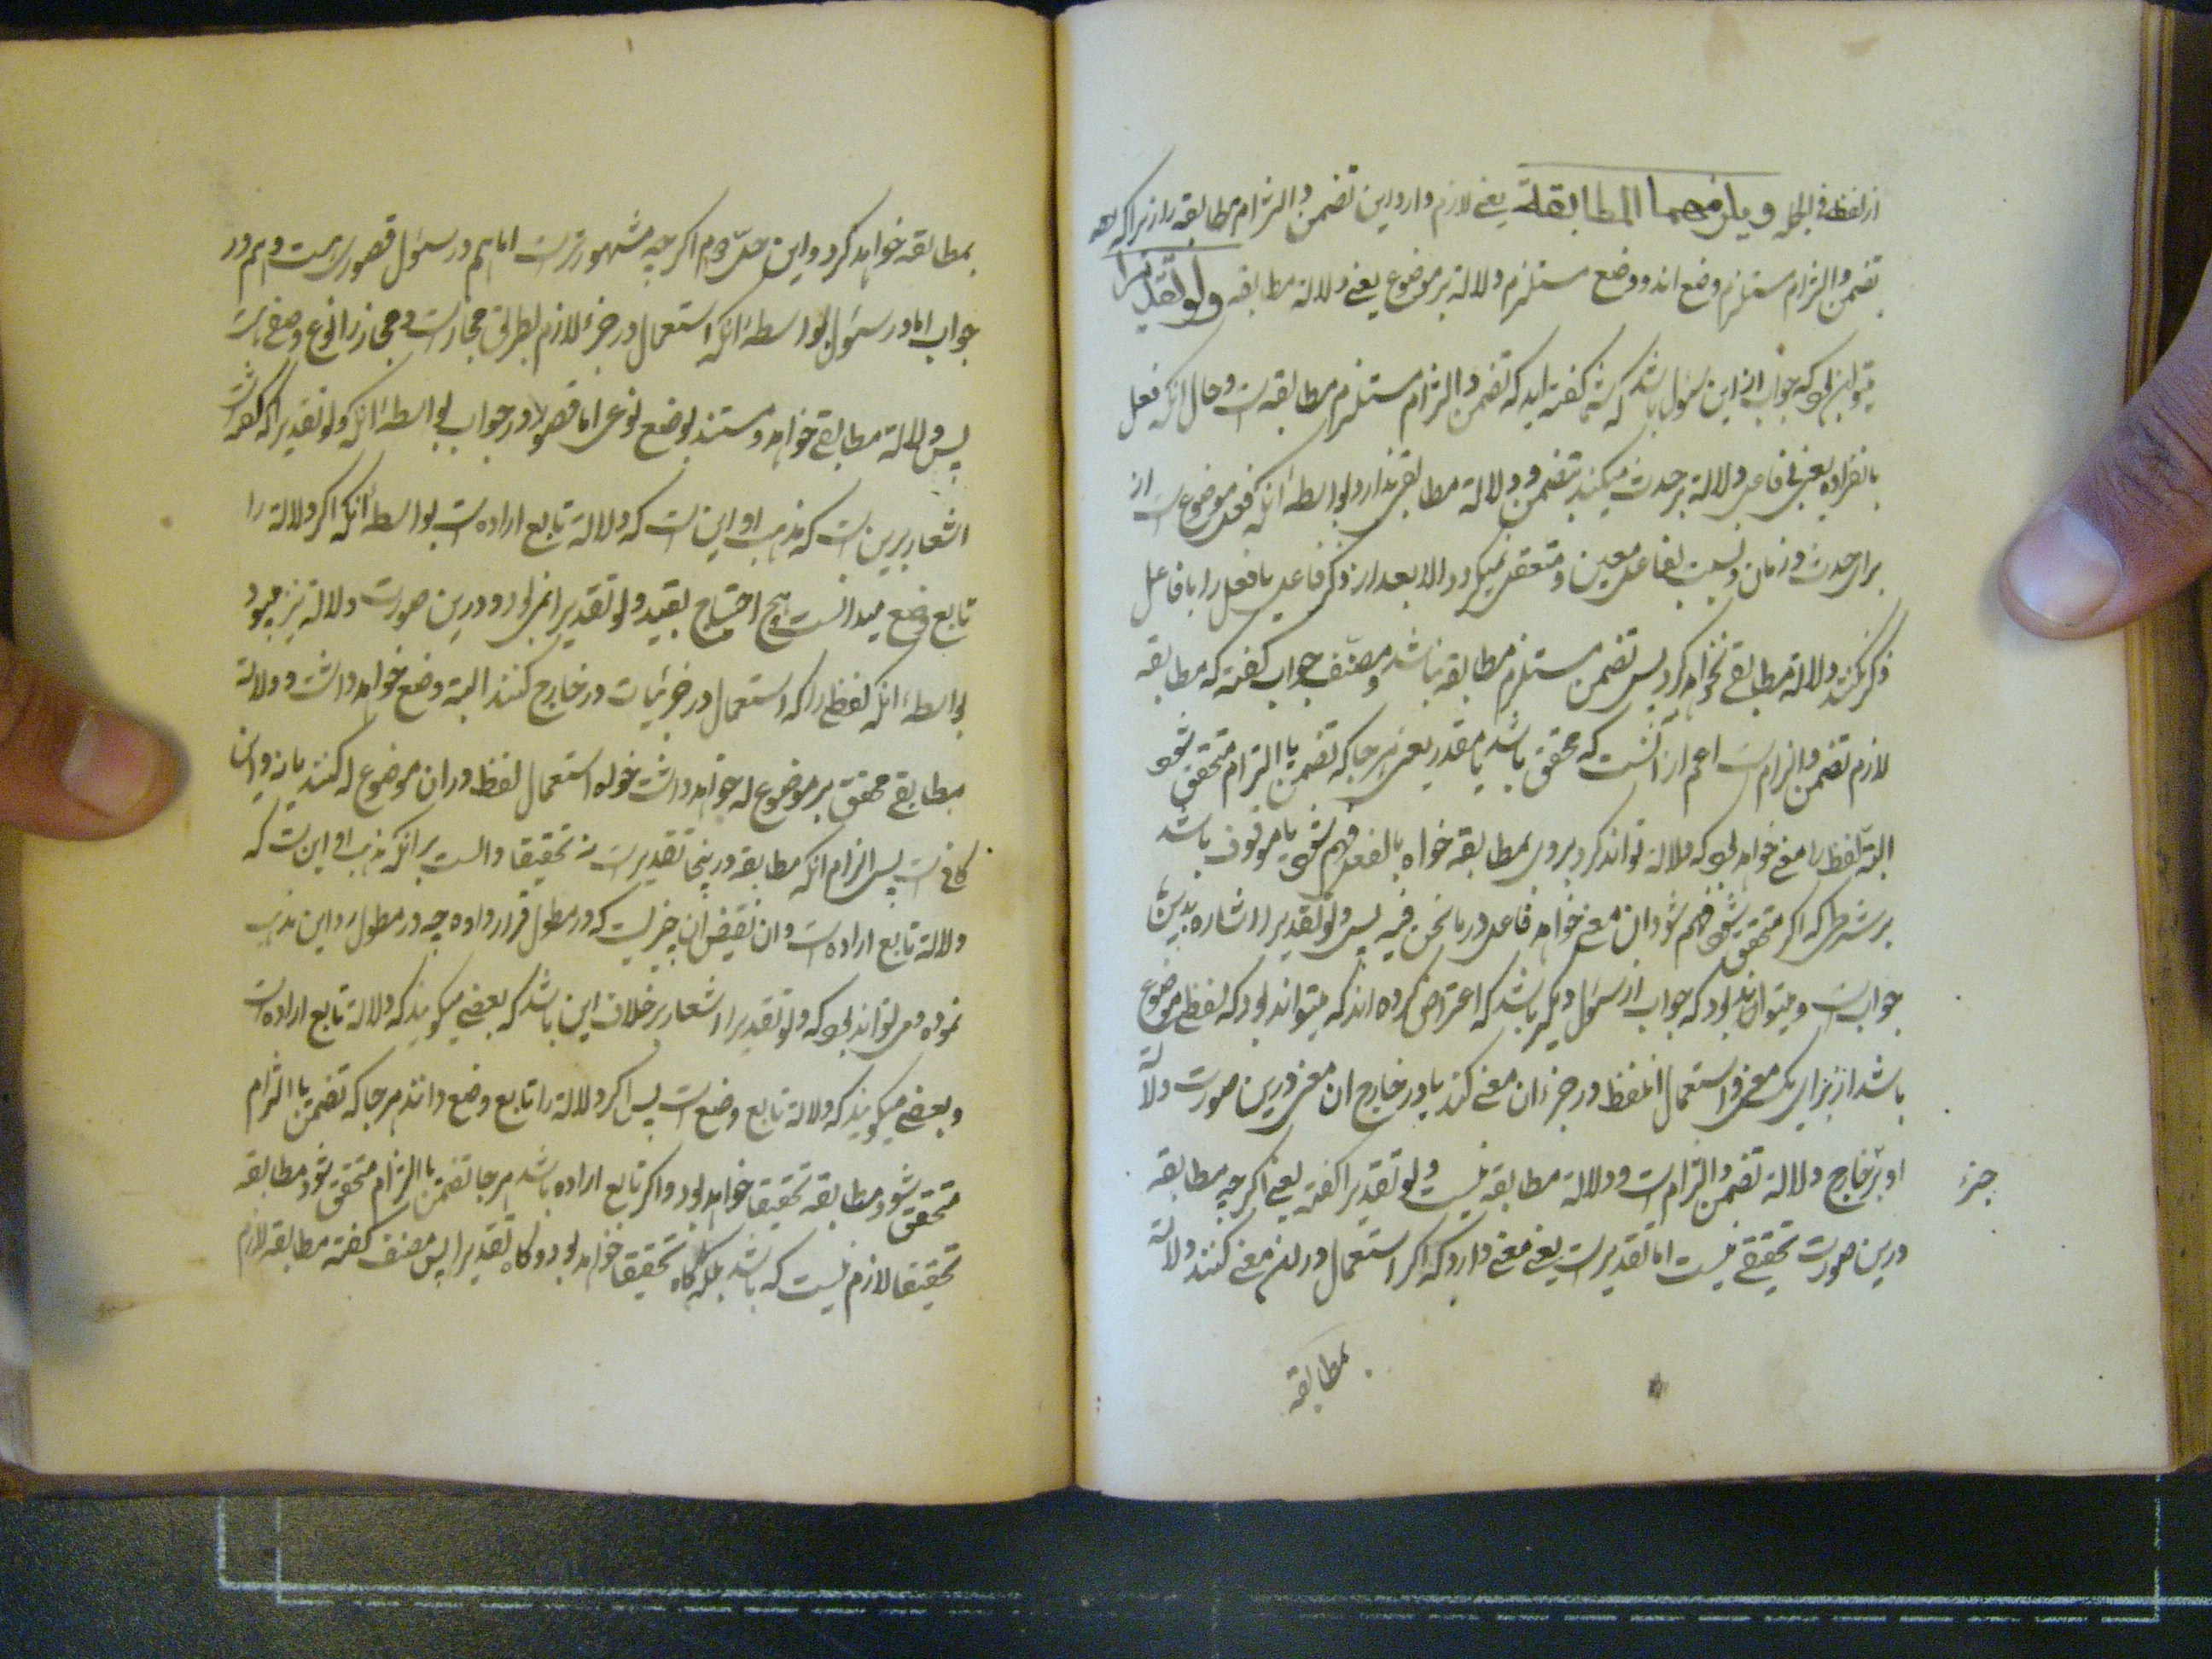 از لفظ فی الجمله ویلزمهما المطابقة یعنی لازم دارد این تضمن و التزام مطابقه را زیرا که
تضمن والتزام مستلزم وضع اند و وضع مستلزم دلالة بر موضوع یعنی دلالة مطابقه ولو تقدیرا
میتواند بود که جواب از این سؤل باشد که شما گفته اید که تضمن والتزام مستلزم مطابقه است و حال آنکه فعل
بانفراده یعنی بی فاعل دلالة بر حدث میکند بتضمن و دلالة مطابقی ندارد بواسطهٔ انکه فعل موضوع است از
برای حدث و زمان و نسبت بفاعل معین و متعقل نمیکردد الا بعد از ذکر فاعل یا فعل را با فاعل
ذکر نکنند دلالة مطابقی نخواهد کرد پس تضمن مستلزم مطابقه نباشد و مصنف جواب کفته که مطابقه
لازم تضمن والتزام است اعم از آنست که محقق باشد یا مقدر یعنی هر جا که تضمن یا التزام متحقق شود
البته لفظ را معنی خواهد بود که دلالة تواند کرد بر وی بمطابقه خواه بالفعل فهم شود یا موقوف باشد
بر شرطی که اکر متحقق شود فهم شود ان معنی خواهد فاعل در ما نحن فیه پس ولو تقدیرا اشاره بدین
جوابست و میتواند بود که جواب از سؤل دیکر باشد که اعتراض کرده اند که میتواند بود که لفظ موضوع
باشد از برای یک معنی و استعمال انلفظ در جزء ان معنی کنند یا در خارج ان معنی درین صورت دلالة
او بر خارج دلالة تضمن والتزام است و دلالة مطابقه نیست ولو تقدیرا کفته یعنی اکرچه مطابقه
جزء
درین صورت تحقیقی نیست اما تقدیریست یعنی معنی دارد که اکر استعمال در ان معنی کنند دلالة
بمطابقه
بمطابقه خواهد کرد و این حل دوم اکرچه مشهورترست اما هم در سؤل قصوری هست و هم در
جواب اما در سؤل بواسطهٔ انکه استعمال در جزء لازم بطریق مجازست و مجاز را نوع وضعی هست
پس دلالة مطابقی خواهد مستند بوضع نوعی اما قصور در جواب بواسطهٔ انکه ولو تقدیرا که گفته
اشعار برین است که مذهب او این است که دلالة تابع اراده است بواسطهٔ آنکه اکر دلالة را
تابع وضع میدانست هیچ احتیاج بقید ولو تقدیرا نمی بود و درین صورت دلالة نیز میبود
بواسطهٔ انکه لفظی را که استعمال در جزئیات در خارج کنند البته وضع خواهد داشت و دلالة
مطابقی محقق بر موضوع له خواهد داشت خواه استعمال لفظ در ان موضوع له کنند یا نه و این
کافی است پس الزام انکه مطابقه درینجا تقدیریست نه تحقیقا دالست بر انکه مذهب او این ست که
دلالة تابع اراده است و ان نقیض ان چیزیست که در مطول قرار داده چه در مطول رد این مذهب
نموده و می تواند بود که ولو تقدیرا اشعار بر خلاف این باشد که بعضی میکویند که دلالة تابع اراده است
و بعضی میکویند که دلالة تابع وضع است پس اکر دلالة را تابع وضع دانند هر جا که تضمن یا التزام
متحقق شود مطابقه تحقیقا خواهد بود و اکر تابع اراده باشد هر جا تضمن یا التزام متحقق شود مطابقه
تحقیقا لازم نیست که باشد بلکه کاه تحقیقا خواهد بود و کاه تقدیرا پس مصنف کفته مطابقه لازم